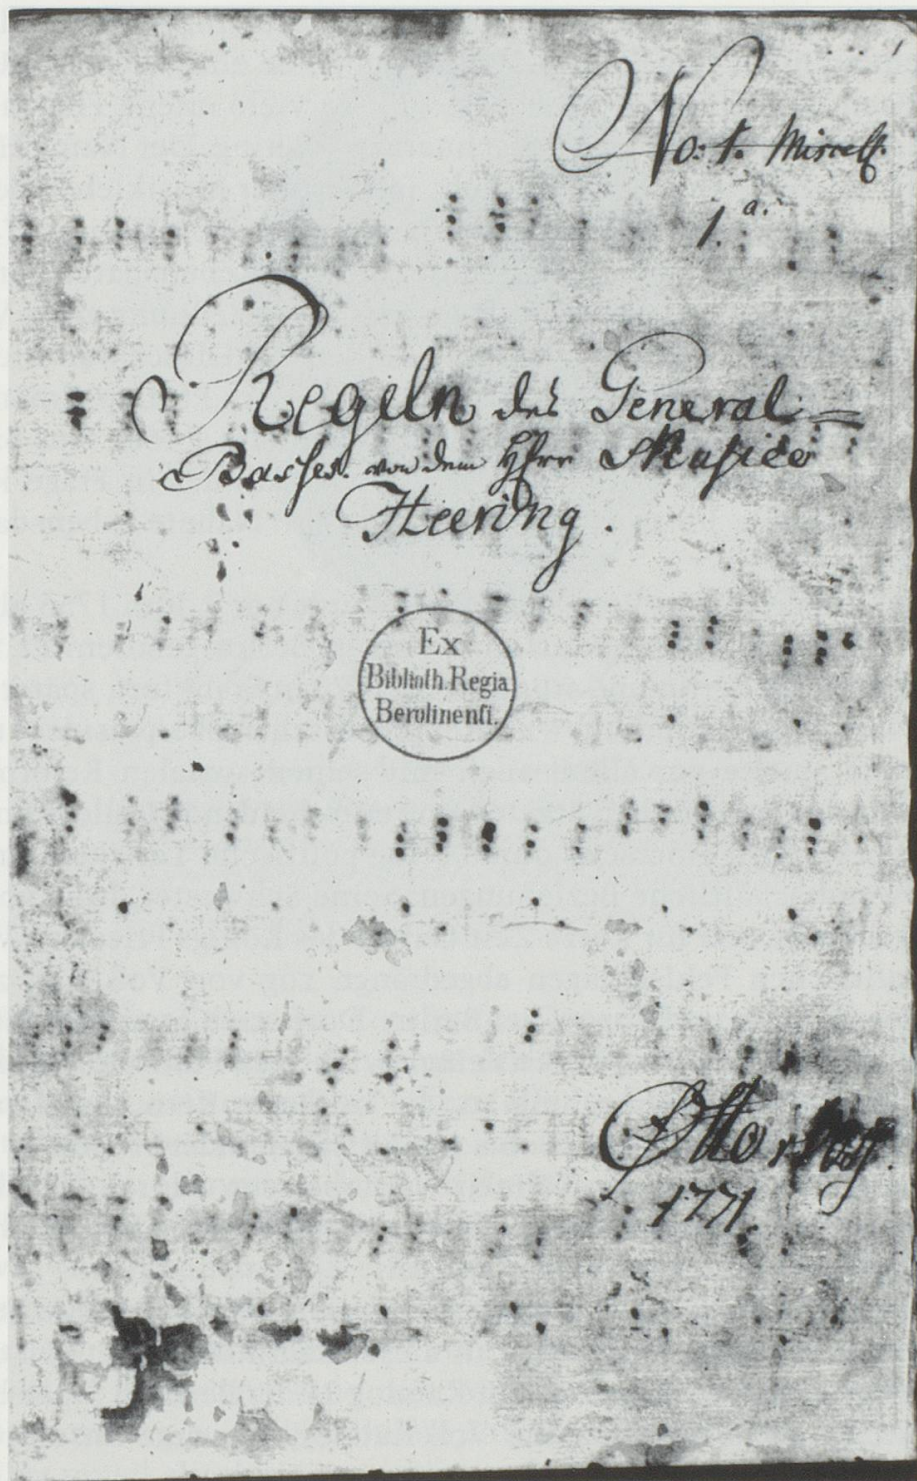 No: 1. Miscell:
1.a.
Regeln des General=
Basses von dem Herr Musico
Heering.
Ex
Biblioth. Regia
Berolinensi.
Otto
1771.